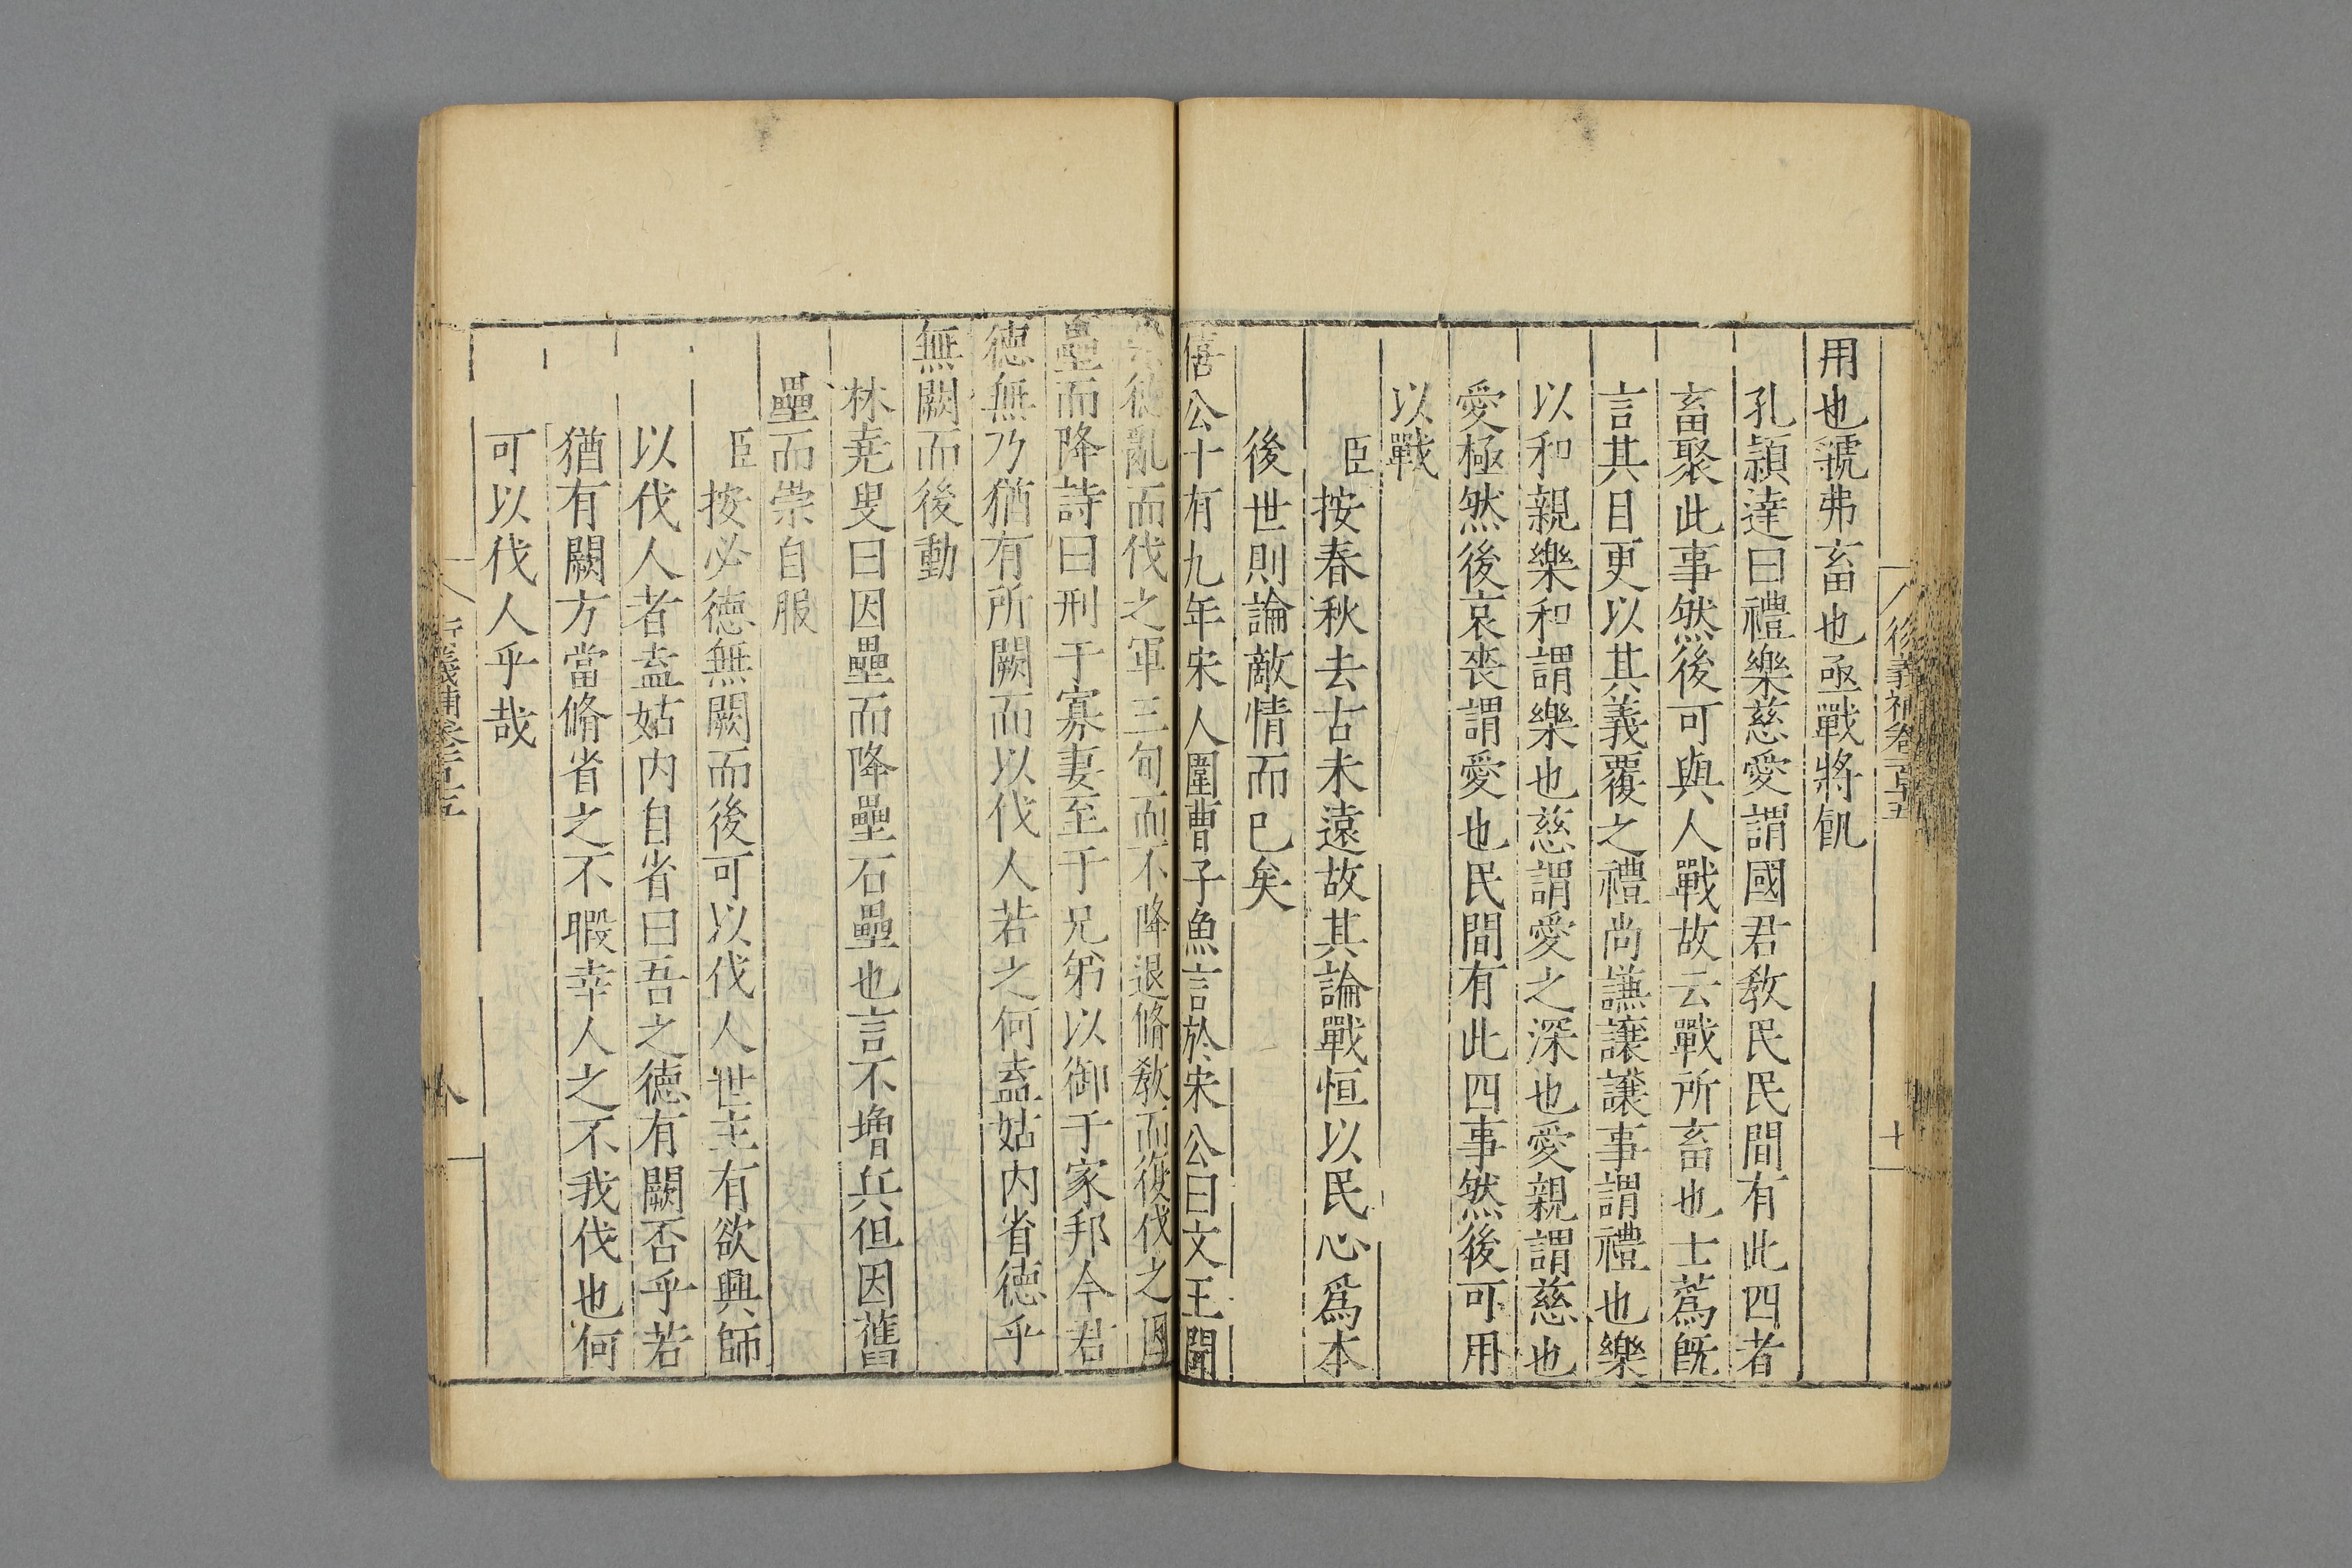 後義補卷一百三五
十
用也虢弗畜也亟戰將飢
孔頴達曰禮樂慈愛謂國君教民民間有此四者
畜聚此事然後可與人戰故云戰所畜也士蒍旣
言其目更以其義覆之禮尚謙讓讓事謂禮也樂
以和親樂和謂樂也慈謂愛之深也愛親謂慈也
愛極然後哀丧謂愛也民間有此四事然後可用
以戰
臣按春秋去古未遠故其論戰恒以民心爲本
後世則論敵情而已矣
僖公十有九年宋人圍曹子魚言於宋公曰文王聞
德亂而伐之軍三旬而不降退脩教而復伐之因
壘而降詩曰刑于寡妻至于兄弟以御于家邦今君
德無乃猶有所闕而以伐人若之何盍姑内省德乎
無闕而後動
林尭叟曰因壘而降壘石壘也言不增兵但因舊
壘而崇自服
臣按必德無闕而後可以伐人世主有欲興師
以伐人者盍姑内自省曰吾之德有闕否乎若
猶有闕方當脩省之不暇幸人之不我伐也何
可以伐人乎哉
義補卷